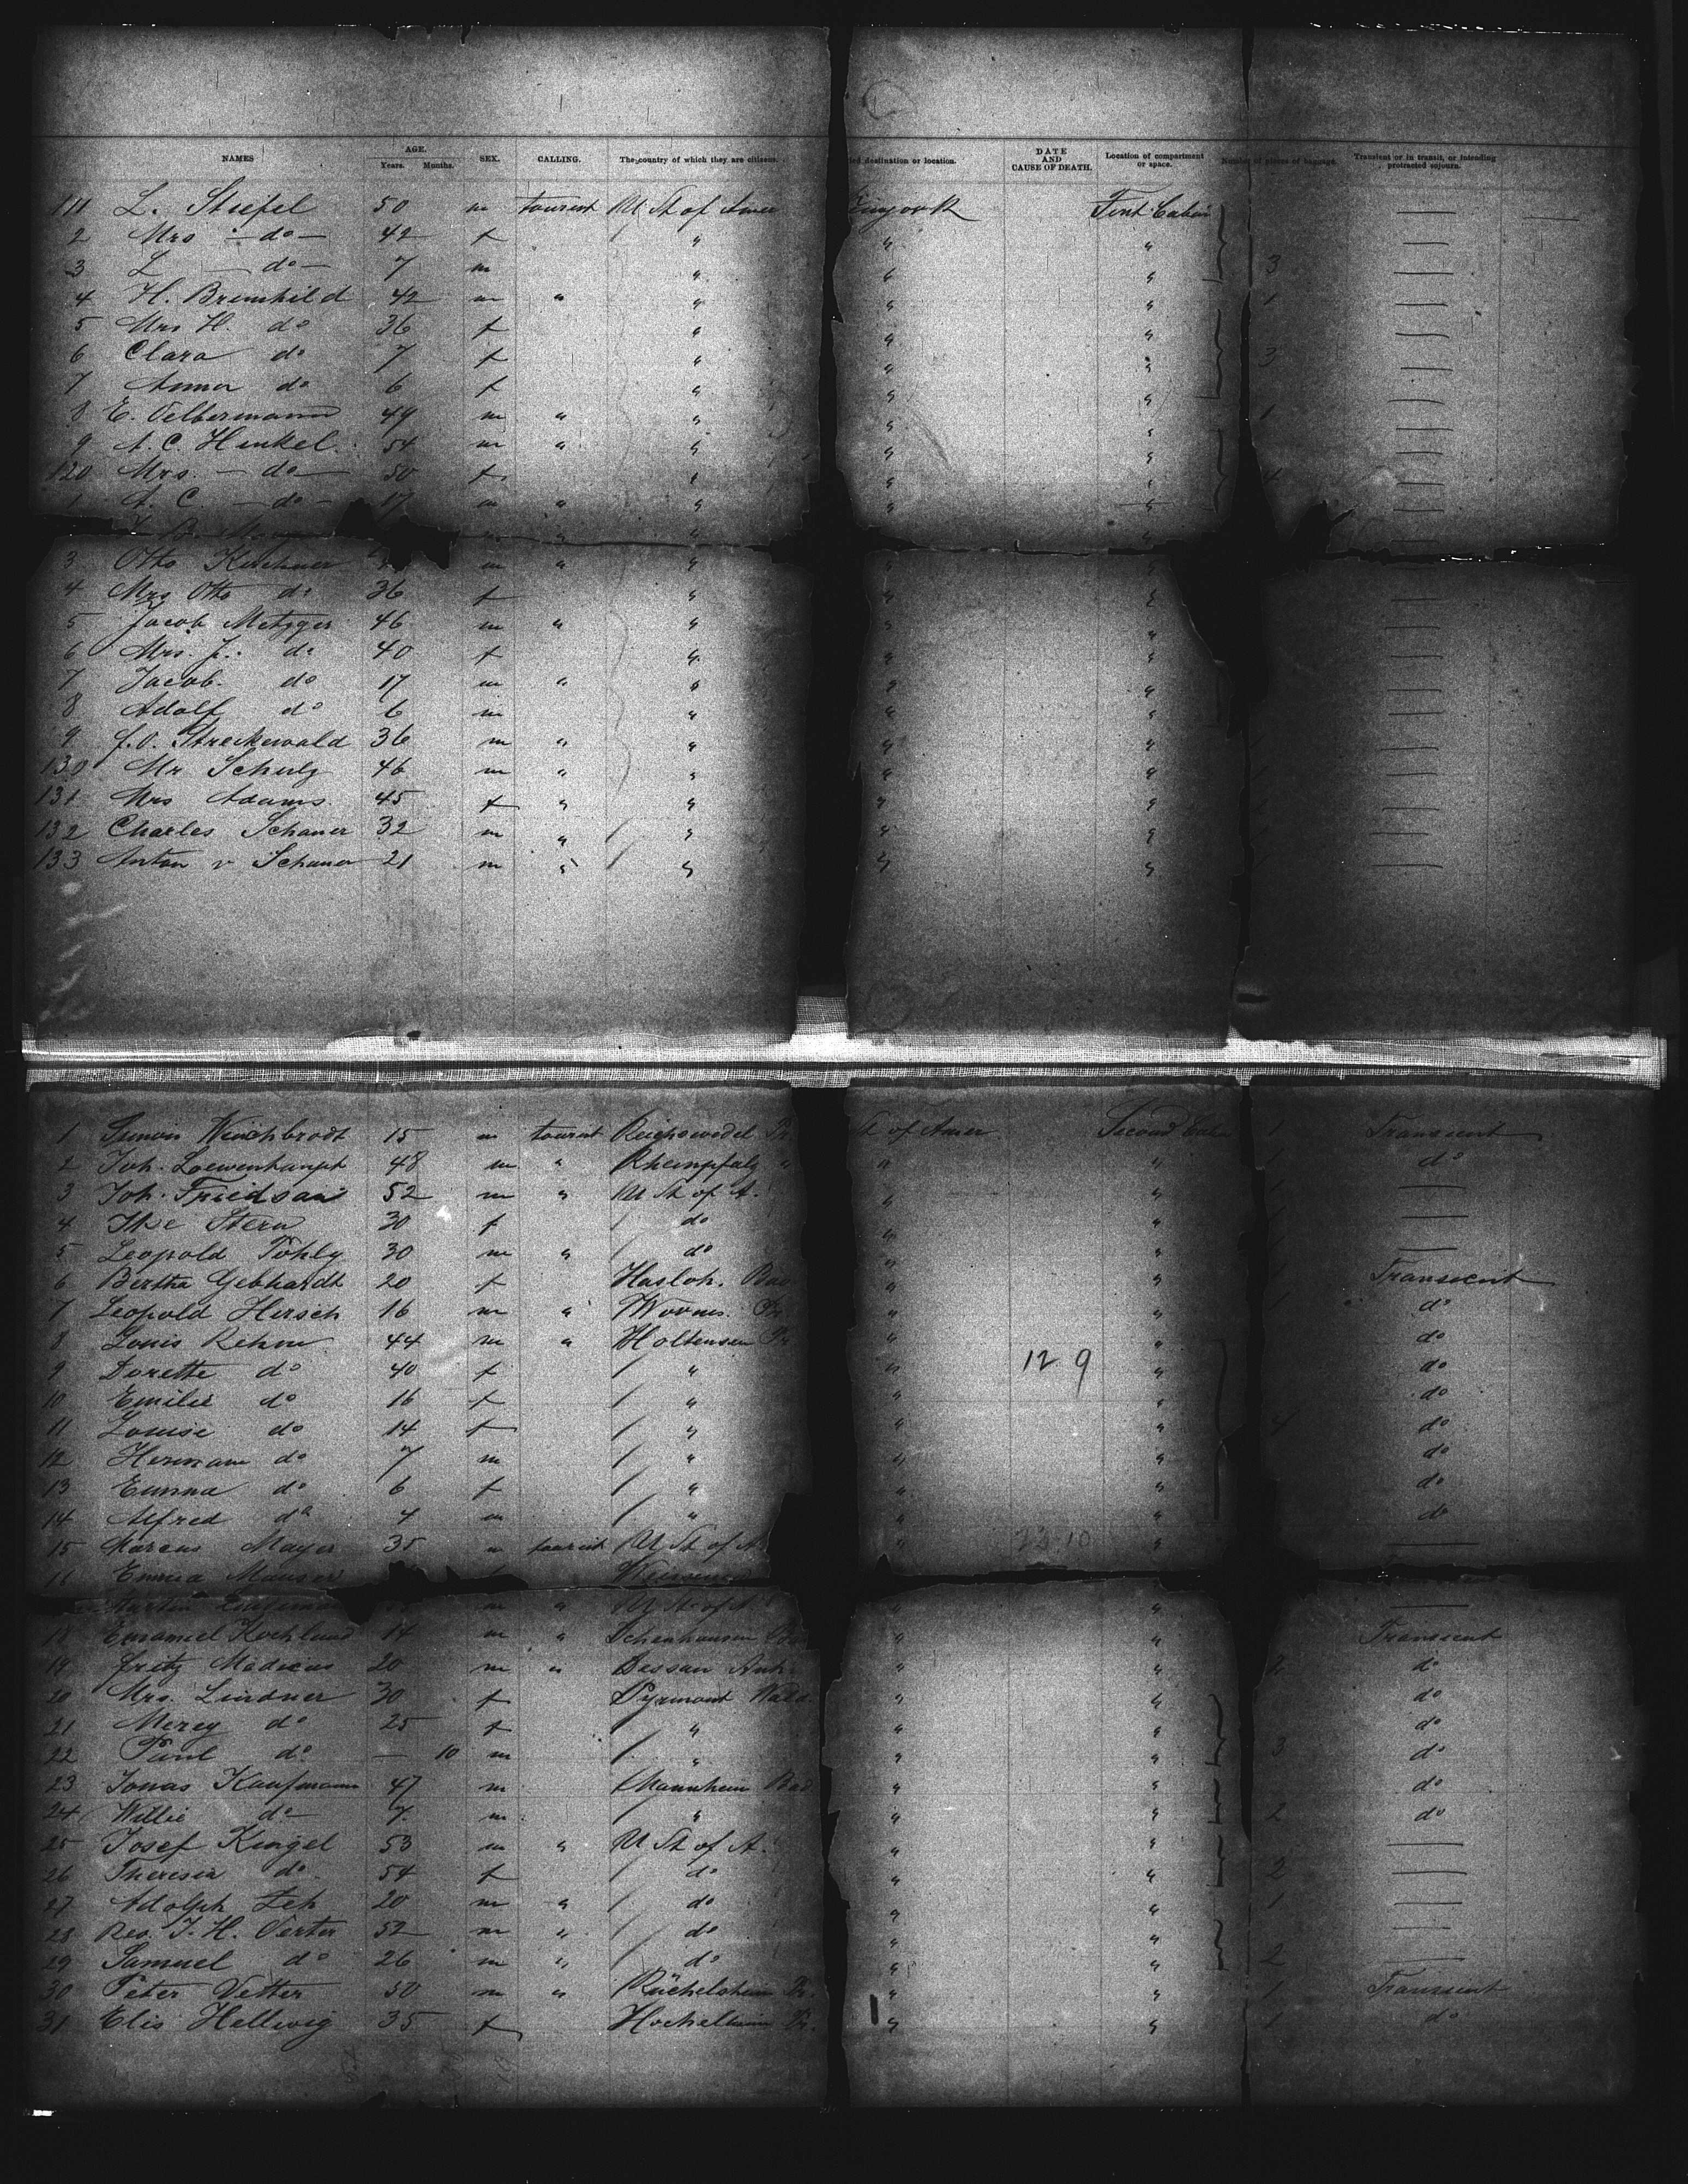 NAMES AGE. Years. Months. SEX. CALLING. The country of which they are citizens. destination or location. DATE AND CAUSE OF DEATH. Location of compartment or space. Number of pieces of baggage. Transient or in transit, or intending protracted sojourn.
111 L. Stiefel 50 m tourist U St of Amer First Cabin —
2 Mrs — do — 42 f " " " —
3 L — do — 7 m " " " 3 —
4 H. Bremhild 42 m " " " " 1 —
5 Mrs H. do 36 f " " " —
6 Clara do 7 f " " " 3 —
7 Anna do 6 f " " " —
8 E. Oelbermann 49 m " " " " 1 —
9 A. C. Hinkel 54 m " " " " —
120 Mrs. — do — 50 f " " " 4 —
1 A. C. — do — 17 m " " " " —
3 Otto Kirchner m " " " "
4 Mrs Otto do 36 f " " " —
5 Jacob Metzger 46 m " " " " —
6 Mrs. J. do 40 f " " " —
7 Jacob do 17 m " " " " —
8 Adolf do 6 m " " " —
9 J. O. Streckewald 36 m " " " " —
130 Mr Schulz 46 m " " " " —
131 Mrs Adams 45 f " " " " —
132 Charles Schauer 32 m " " " " —
133 Anton v Schauer 21 m " " " " —
1 15 m tourist of Amer Second Cabin 1 Transient
2 Joh. Loewenhaupt 48 m " Rheinpfalz " " " 1 do
3 Joh. Friedsan 52 m " U St of A. " " —
4 Ike Stern 30 f do " " —
5 Leopold Pohly 30 m " do " " —
6 Bertha Gebhardt 20 f Hasloh. " " Transient
7 Leopold Hirsch 16 m " Worms " " 1 do
8 Louis Rehm 44 m " Holtensen Pr " " do
9 Dorette do 40 f " " 12 9 " do
10 Emilie do 16 f " " " do
11 Louise do 14 f " " " 4 do
12 Hermann do 7 m " " " do
13 Emma do 6 f " " " do
14 Alfred do 4 m " " " do
15 Marcus Mayer 35 m tourist U St of A. " 23 10 " —
16 Emma
Martin m " U St of A " " —
18 Emanuel Kochland 14 m " Schenhausen " " Transient
19 Fritz Medicus 20 m " Dessau Anh. " " 2 do
20 Mrs. Lindner 30 f Pyrmont Wald. " " do
21 Mercy do 25 f " " " do
22 Paul do — 10 m " " " 3 do
23 Jonas Kaufmann 47 m Mannheim Bad " " do
24 Willie do 7 m " " " 2 do
25 Josef Kingel 53 m " U St of A. " " —
26 Theresia do 54 f do " " 2 —
27 Adolph Zeh 20 m " do " " 1 —
28 Rev. J. H. Oerter 52 m " do " " —
29 Samuel do 26 m " do " " 2 —
30 Peter Vetter 50 m " Rüchelsheim Pr. " " 1 Transient
31 Elis Hellwig 35 f Hochelheim Pr. " " 1 do